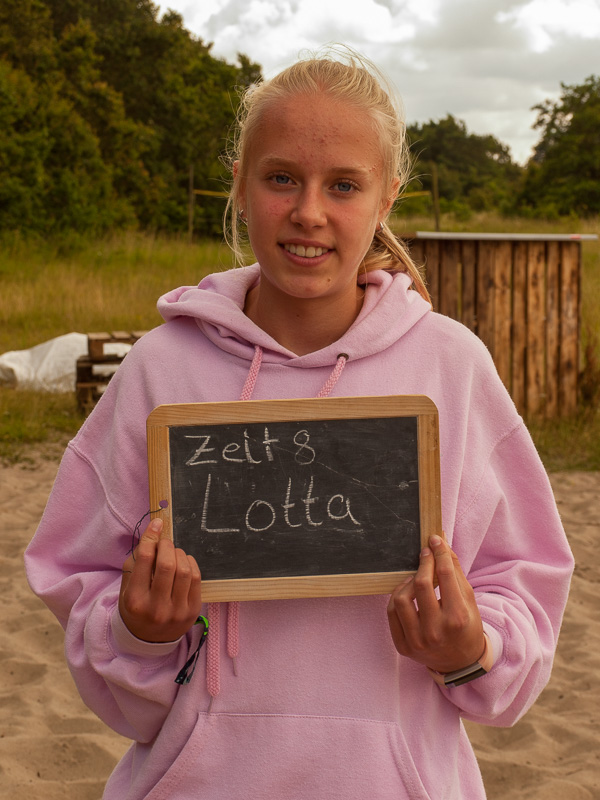 Zelt 8
Lotta